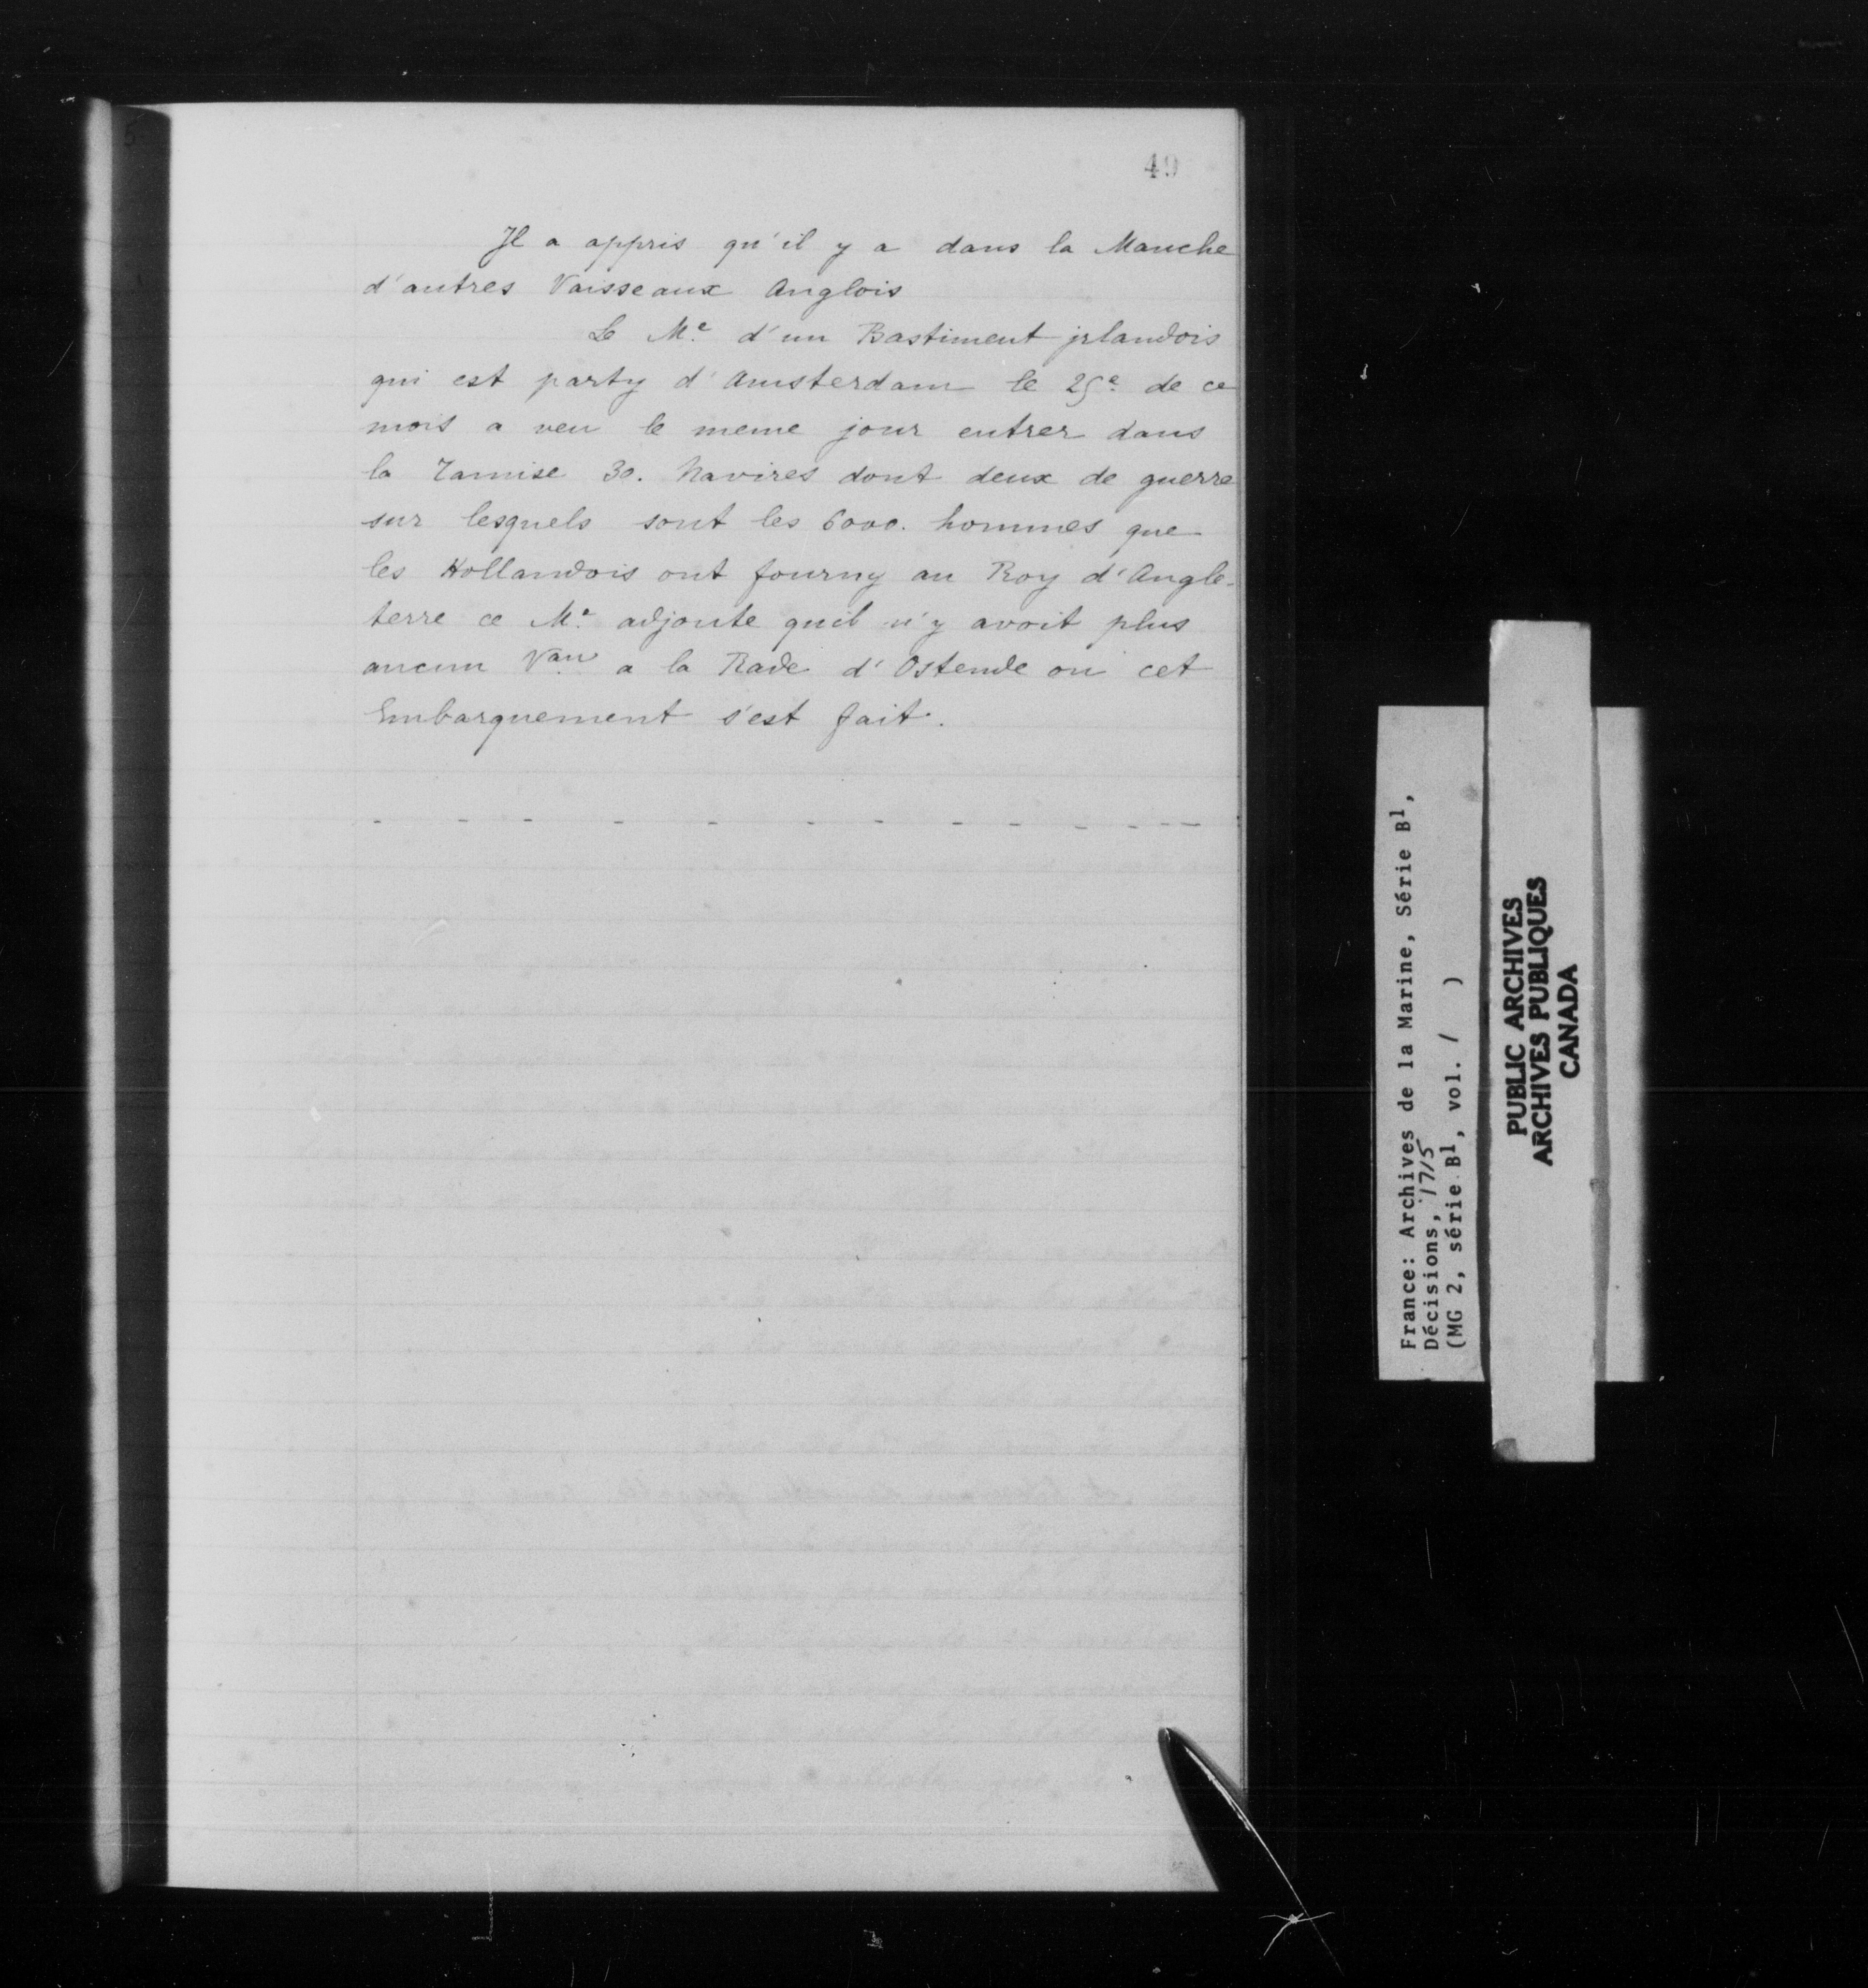 49
Il a appris qu'il y a dans la Manche
d'autres Vaisseaux Anglois
Le Me d'un Bastiment jrlandois
qui est party d'Amsterdam le 25e de ce
mois a veu le meme jour entrer dans
la Tamise 30. Navires dont deux de guerre
sur lesquels sont les 6000. hommes que
les Hollandois ont fourny au Roy d'Angle-
terre ce Me adjoute quil n'y avoit plus
aucun Vau a la Rade d'Ostende ou cet
Embarquement s'est fait.
- - - - - - - - - - - - -
France: Archives de la Marine, Série B1,
Décisions, 1715
(MG 2, série B1, vol. 1 )
PUBLIC ARCHIVES
ARCHIVES PUBLIQUES
CANADA